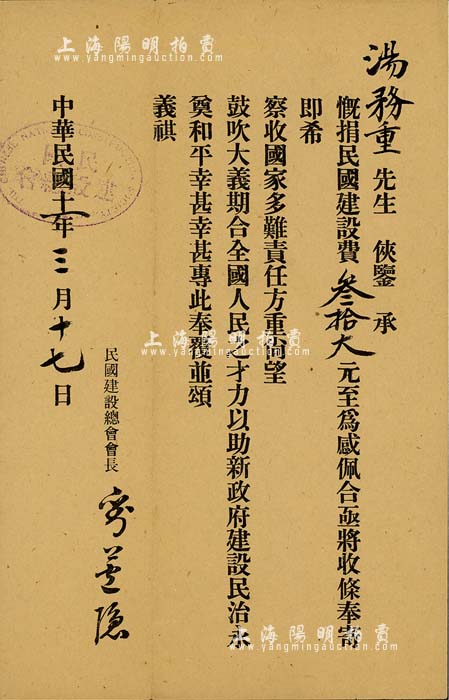 湯務重先生 俠鑒 承
慨捐民國建設費叁拾大元至爲感佩合亟將收條奉寄
即希
察收國家多難責任方重尚望
鼓吹大義期合全國人民之才力以助新政府建設民治永
奠和平幸甚幸甚專此奉覆並頌
義祺
民國建設總會會長
中華民國十一年三月十七日
上海陽明拍賣
www.yangmingauction.com
上海陽明拍賣
www.yangmingauction.com
上海陽明拍賣
www.yangmingauction.com